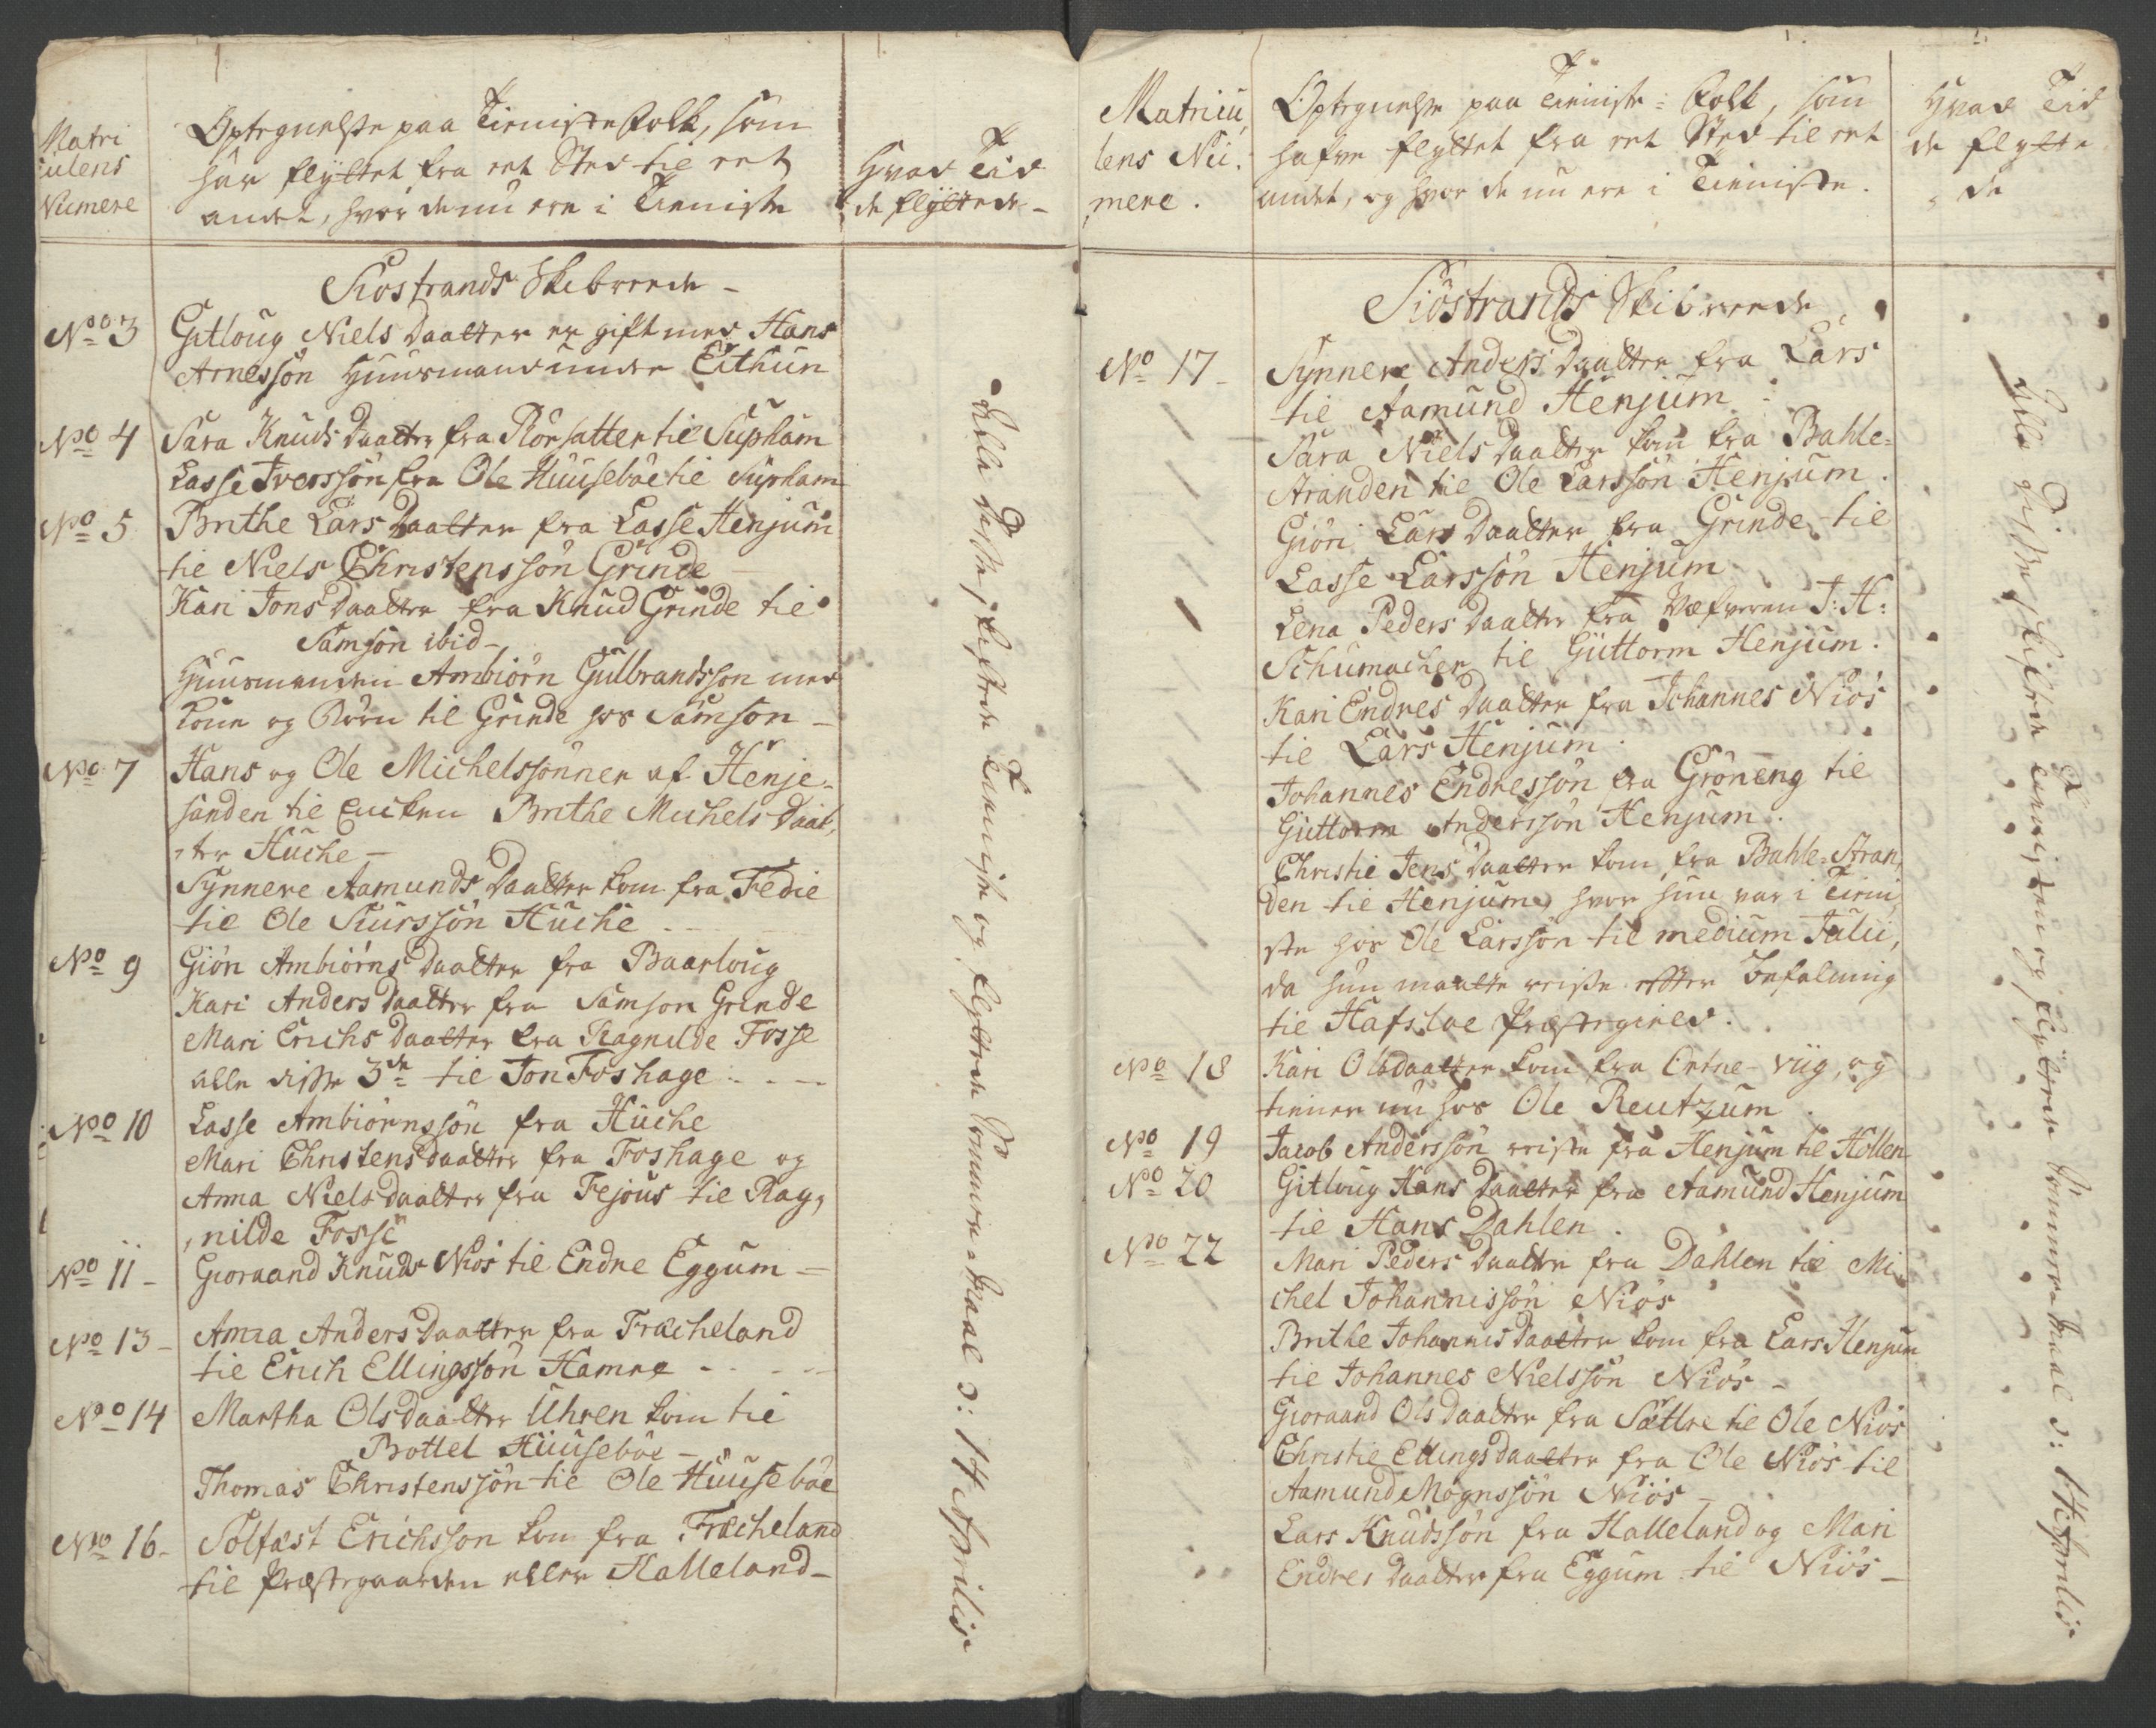 Matri
culens
Numere
Optegnelse paa Tieniste Folk, som
har flyttet fra eet Sted til eet
andet, hvor de nu ere i Tieniste
Hvad Tid
de flyttede -
Siostrands Skibreede -
No 3 Gitloug Niels Daatter er gift med Hans
Arnessön Huusmand under Eithun
No 4 Sara Knuds Daatter fra Rörsatter til Supham
Lasse Iverssön fra Ole Huuseböe til Supham
No 5 Brithe Lars Daatter fra Lasse Henjum
til Niels Christenssön Grinde
Kari Jons Daatter fra Knud Grinde til
Samson ibid -
Huusmanden Ambiörn Gulbrandsson med
Kone og Börn til Grinde hos Samson -
No 7 Hans og Ole Michelssönner af Henje-
sanden til Encken Brithe Michels Daat,
,ter Huche -
Synneve Aamunds Daatter kom fra Fedie
til Ole Siurssön Huche
No 9 Giöri Ambiörns Daatter fra Baarloug
Kari Anders Daatter fra Samson Grinde
Mari Erichs Daatter fra Ragnilde Fosse
alle disse 3de til Jon Foshage
No 10 Lasse Ambiörnssön fra Huche
Mari Christens Daatter fra Foshage og
Anna Niels Daatter fra Fejous til Rag,
,nilde Fosse
No 11 - Gioraand Knuds Niös til Endre Eggum -
No 13 - Anna Anders Daatter fra Fræcheland
til Erich Ellingssön Hamre
No 14 Martha Olsdaatter Uhren kom til
Bottel Huuseböe -
Thomas Christenssön til Ole Huuseböe
No 16 - Solfast Erichsson kom fra Fræcheland
til Præstegaarden eller Halleland -
Alle disse skiftede Tieniste og flyttede Sommer-Maal ɔ: 14 Aprilis
Matricu,
lens Nu,
mere.
Optegnelse paa Tieniste-Folk, som
hafve flyttet fra eet Sted til eet
andet, og hvor de nu ere i Tieniste.
Hvad Tid
de flytte
de
Siöstrands Skibreede
No 17 - Synneve Anders Daatter fra Lars
til Aamund Henjum
Sara Niels Daatter kom fra Bahle-
stranden til Ole Larssön Henjum.
Giöri Lars Daatter fra Grinde til
Lasse Larssön Henjum
Lena Peders Daatter fra J: H:
Schumacher til Guttorm Henjum.
Kari Endres Daatter fra Johannes Niös
til Lars Henjum.
Johannes Endressön fra Gröneng til
Guttorm Anderssön Henjum.
Christie Jens Daatter kom fra Bahle-Stran,
den til Henjum, hvor hun var i Tieni,
ste hos Ole Larssön til medium Julii,
da hun maatte reise efter Befalning
til Hafsloe Præstegield.
No 18 Kari Olsdaatter kom fra Ortne-viig, og
tiener nu hos Ole Reutzum
No 19 Jacob Anderssön reiste fra Henjum til Hollen
No 20 Gitloug Hans Daatter fra Aamund Henjum
til Hans Dahlen.
No 22 Mari Peders Daatter fra Dahlen til Mi,
chel Johannissön Niös
Brithe Johannis Daatter kom fra Lars Henjum
til Johannes Nielssön Niös -
Gioraand Ols Daatter fra Sættre til Ole Niös
Christie Ellings Daatter fra Ole Niös til
Aamund Mognssön Niös -
Lars Knudssön fra Halleland og Mari
Endres Daatter fra Eggum til Niös -
Alle disse skiftede Tieniste og flyttede Sommer-Maal ɔ: 14 Aprilis